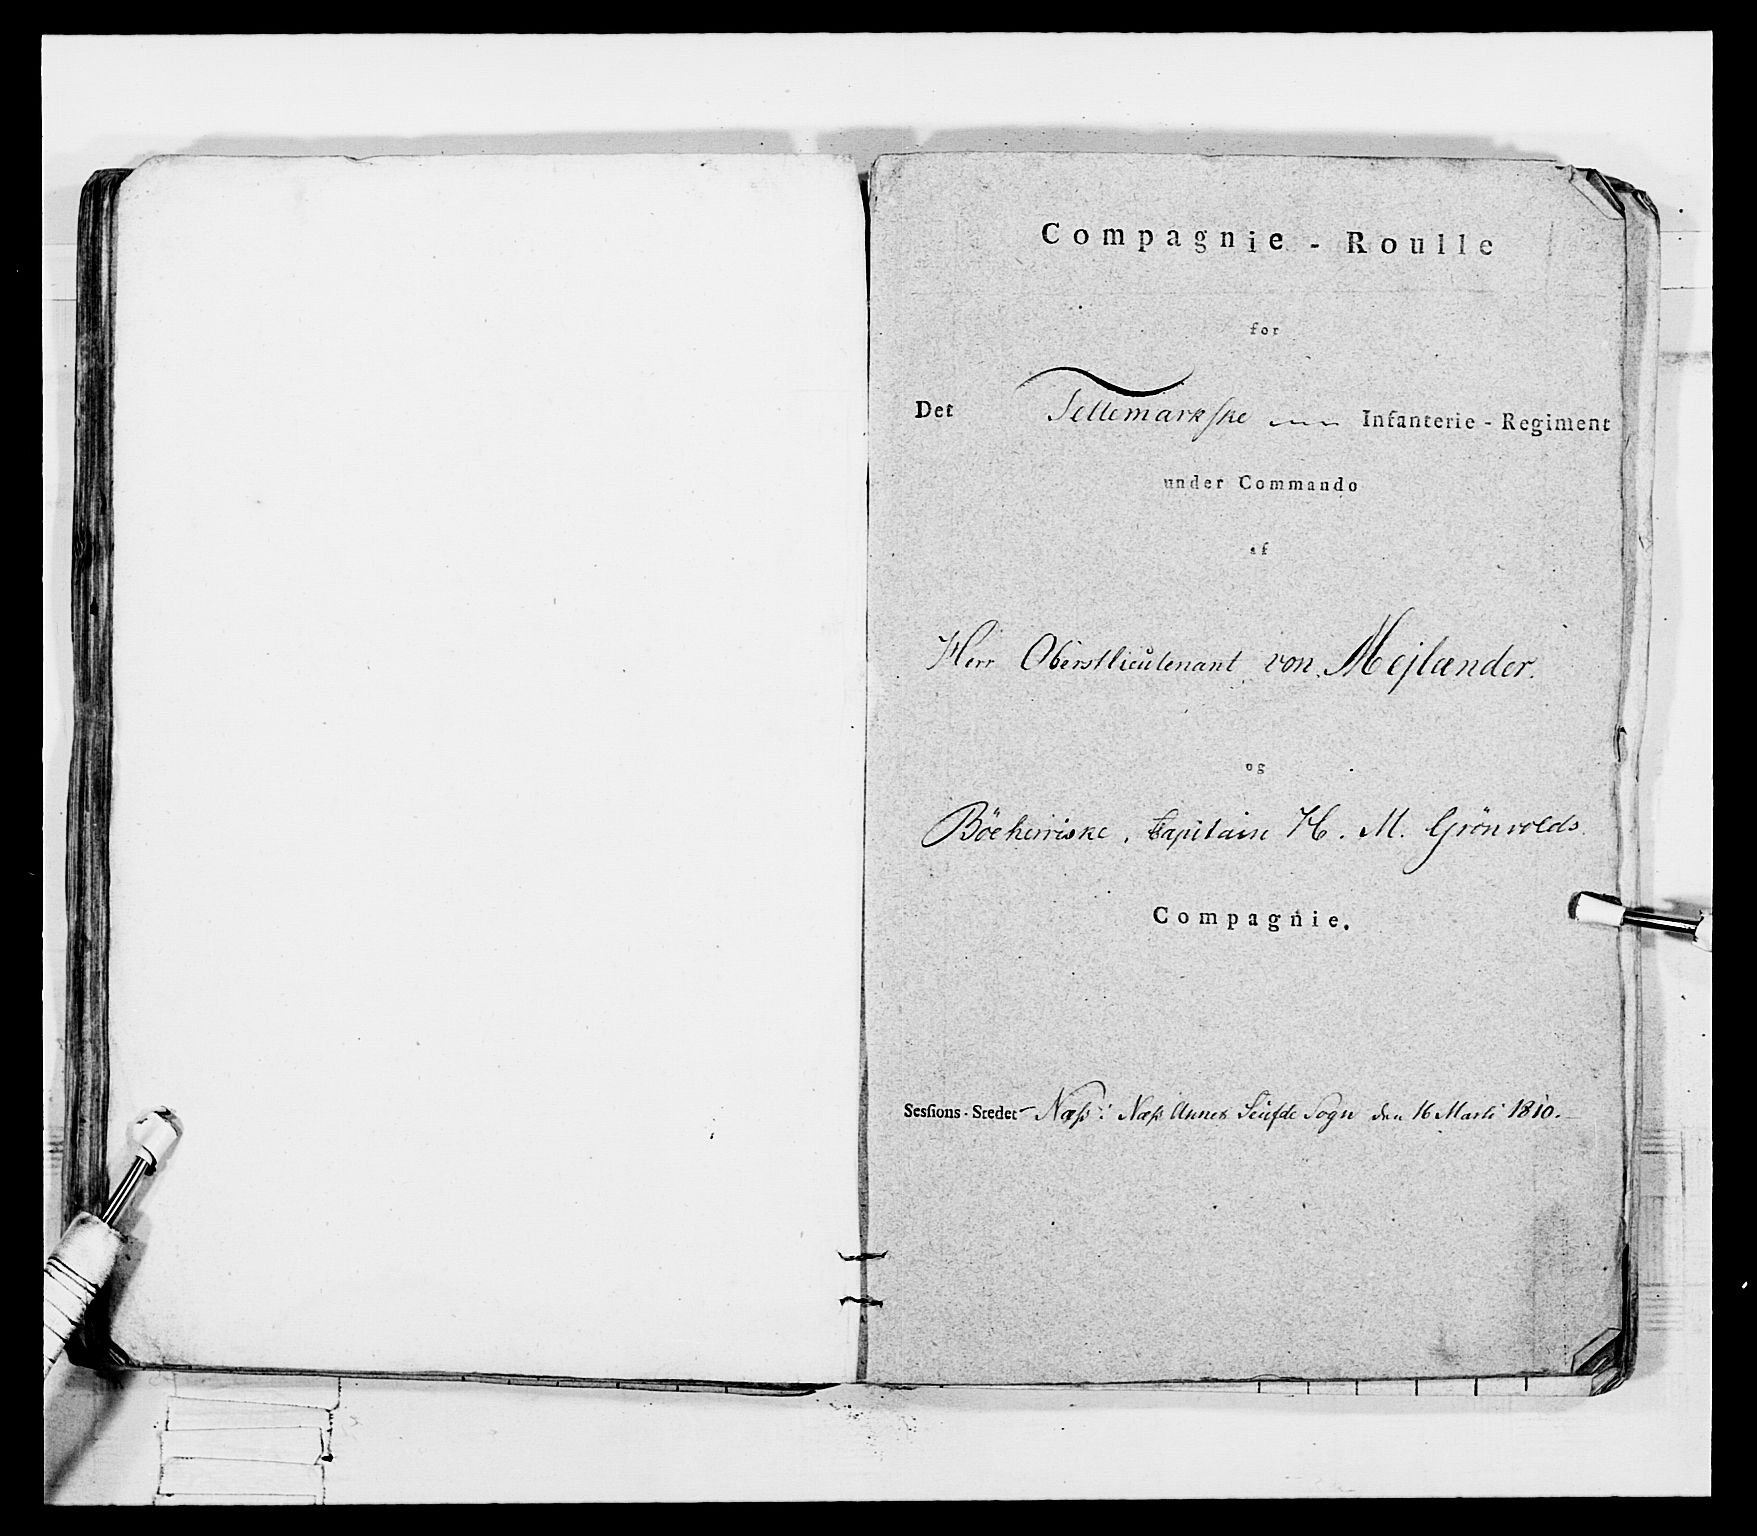 Compagnie - Roulle
for
Det Tellemarkske Infanterie - Regiment
under Commando
af
Herr Oberstlieutenant von Mejlænder.
og
Böeherriske, Capitain H. M. Grönvolds
Compagnie.
Sessions-Stedet Næss i Næss Annex Sognn den 16 Marti 1810.